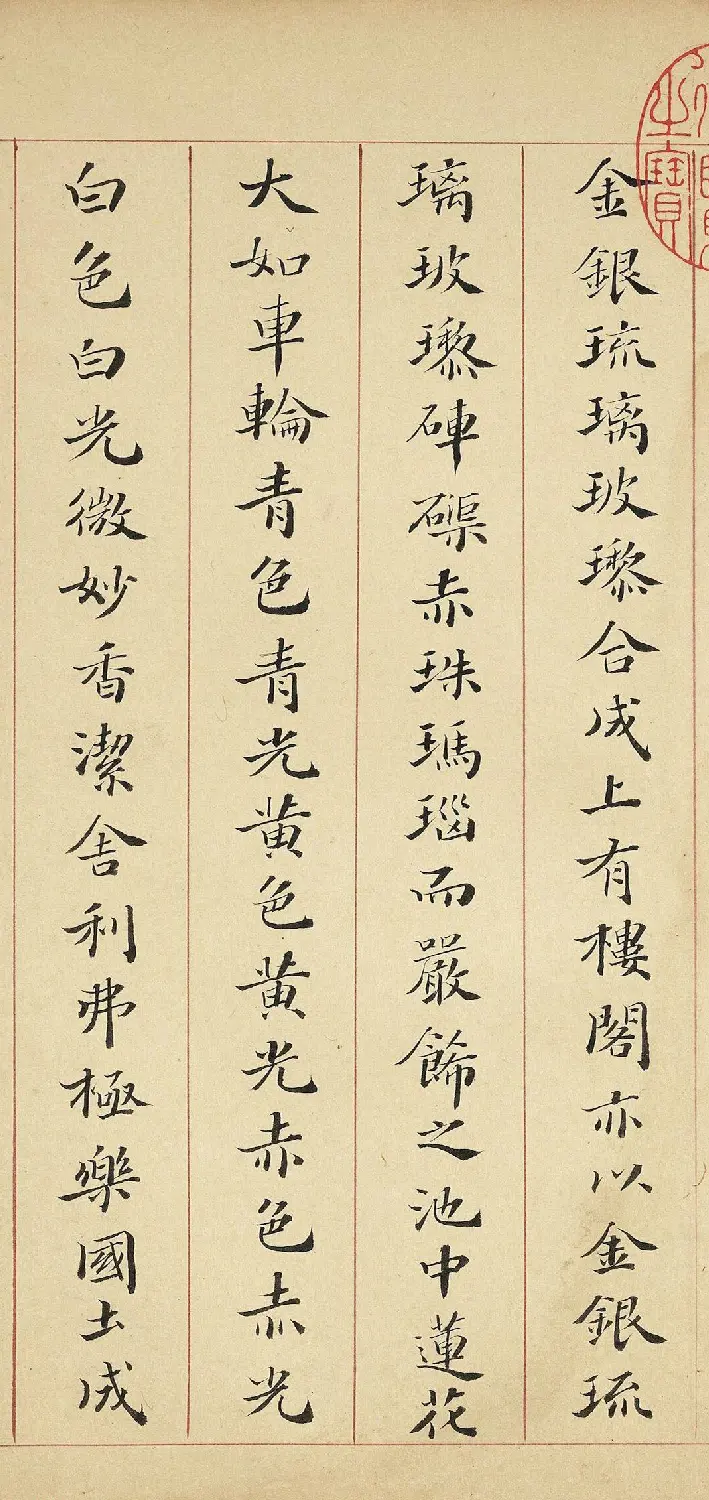 金銀琉璃玻瓈合成上有樓閣亦以金銀琉
璃玻瓈硨磲赤珠瑪瑙而嚴飾之池中蓮花
大如車輪青色青光黃色黃光赤色赤光
白色白光微妙香潔舍利弗極樂國土成
寶